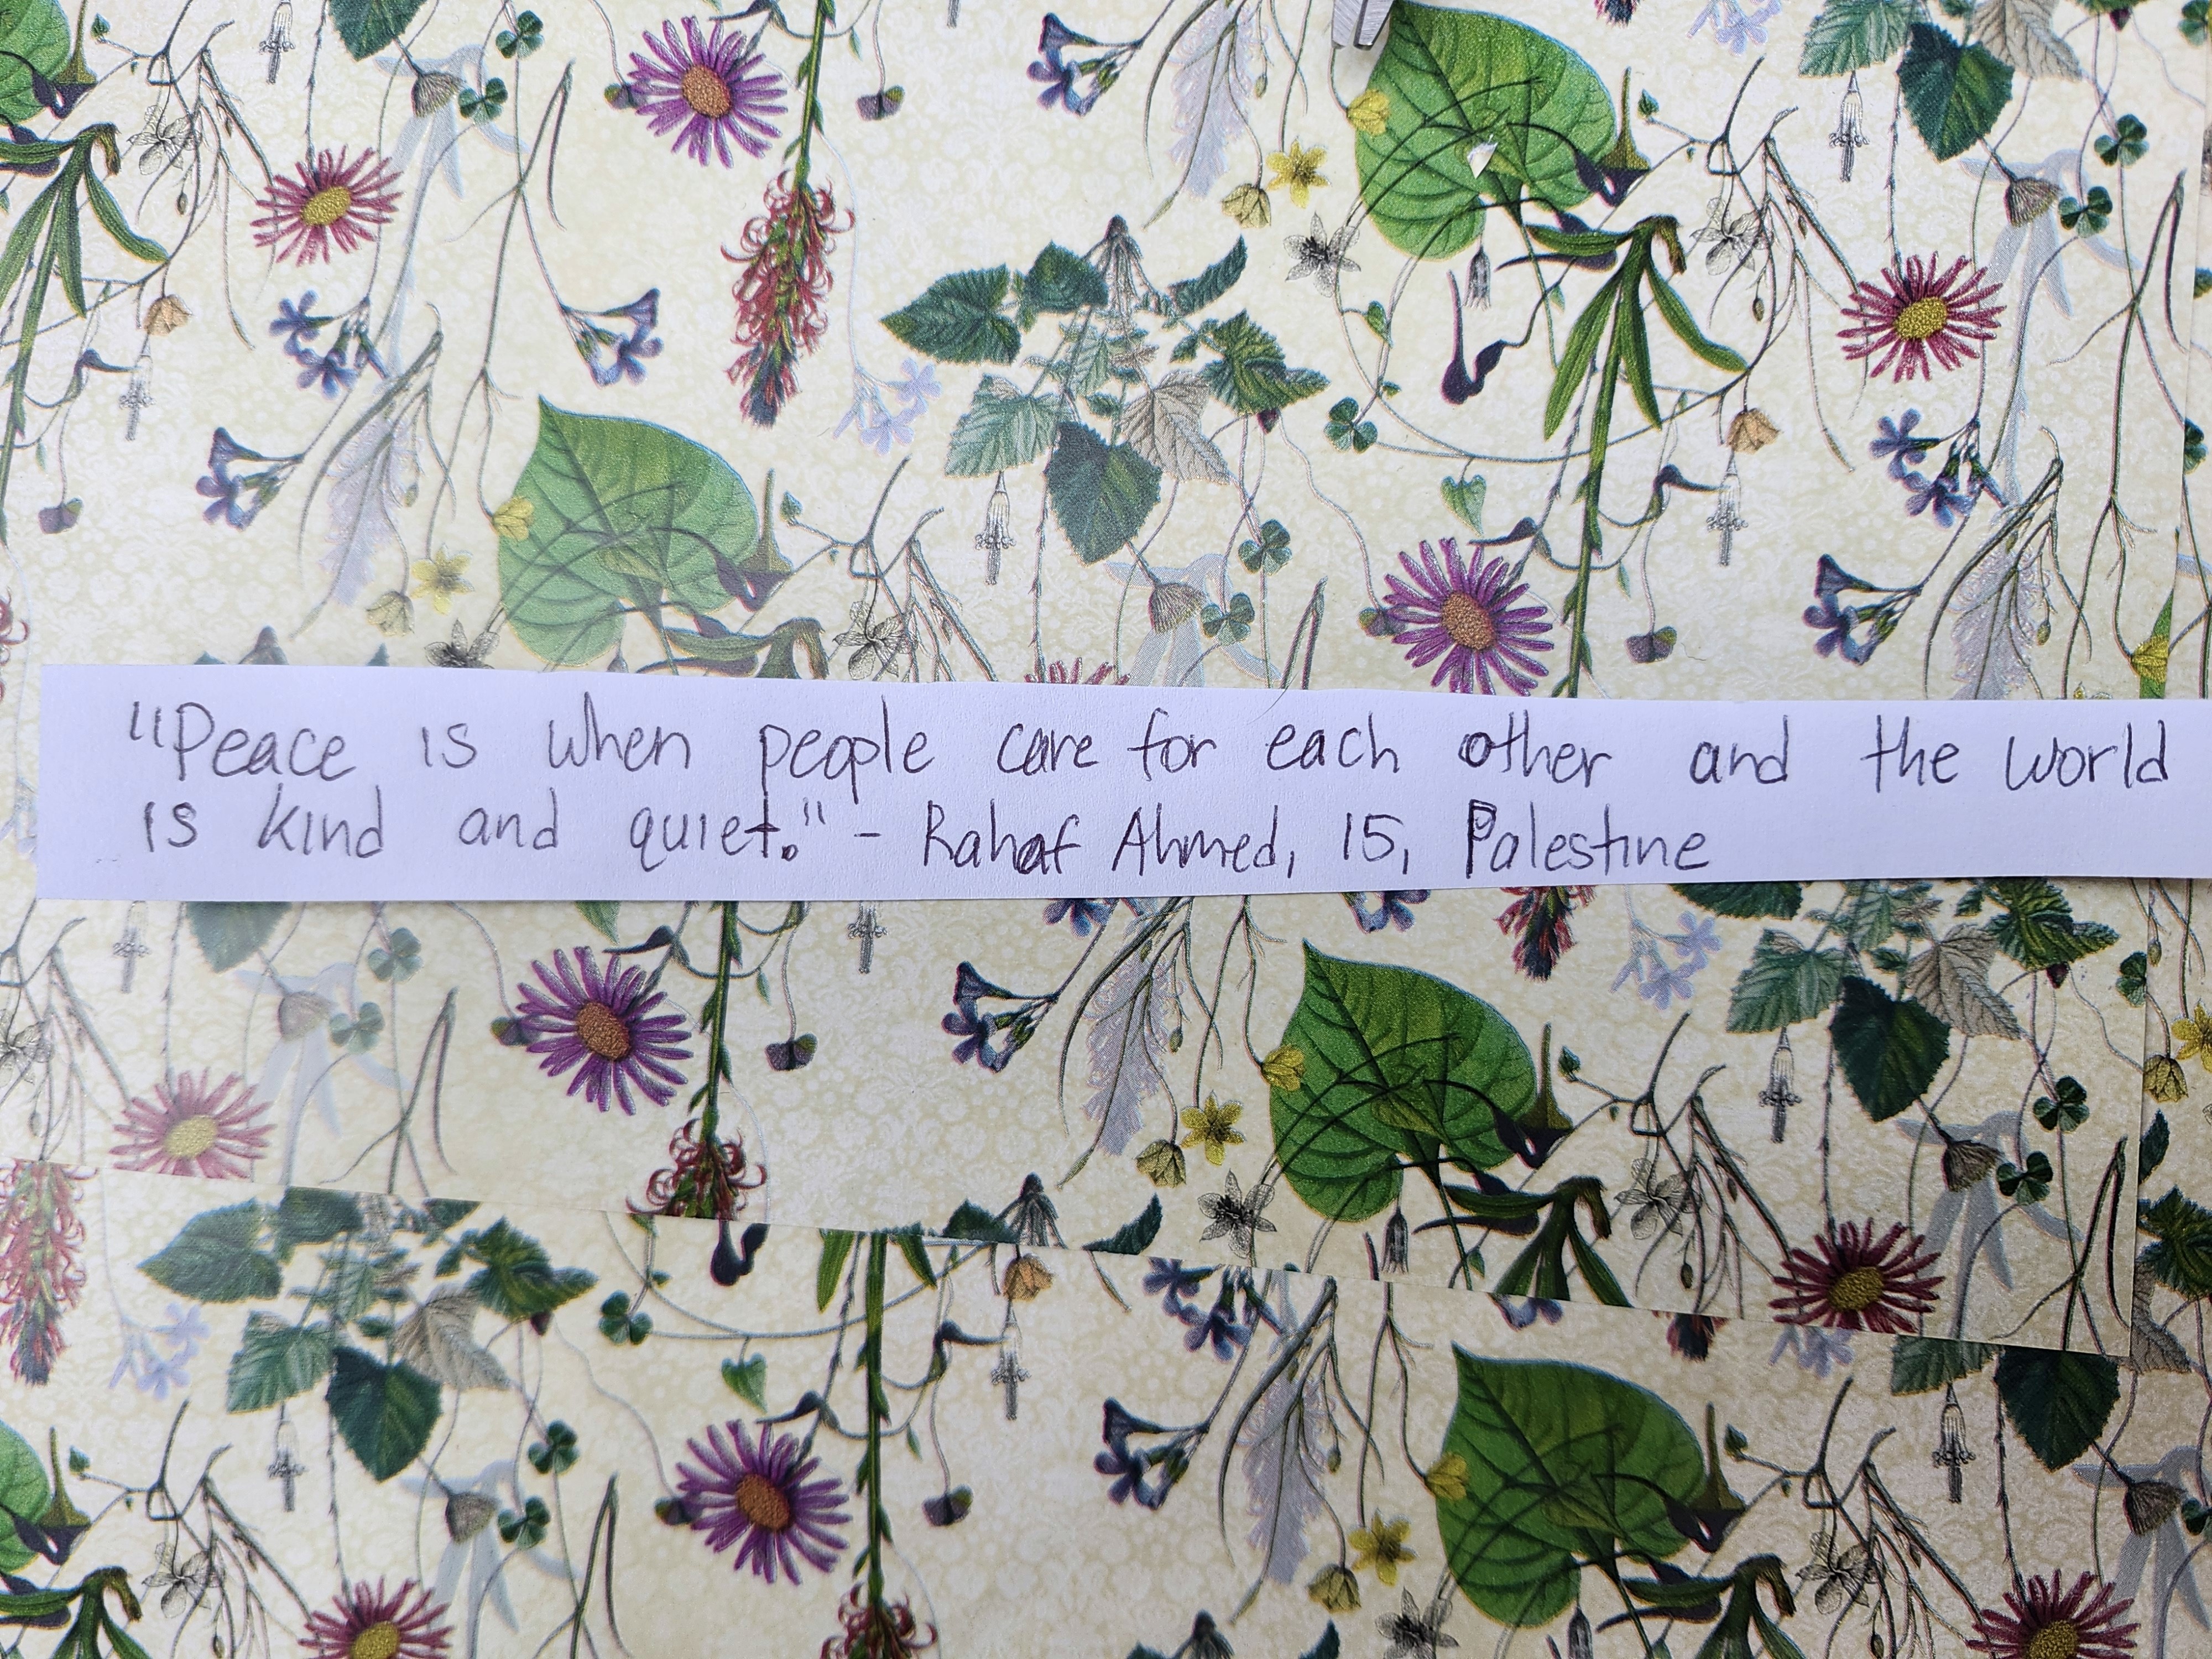 "Peace is when people care for each other and the world
is kind and quiet." - Rahaf Ahmed, 15, Palestine